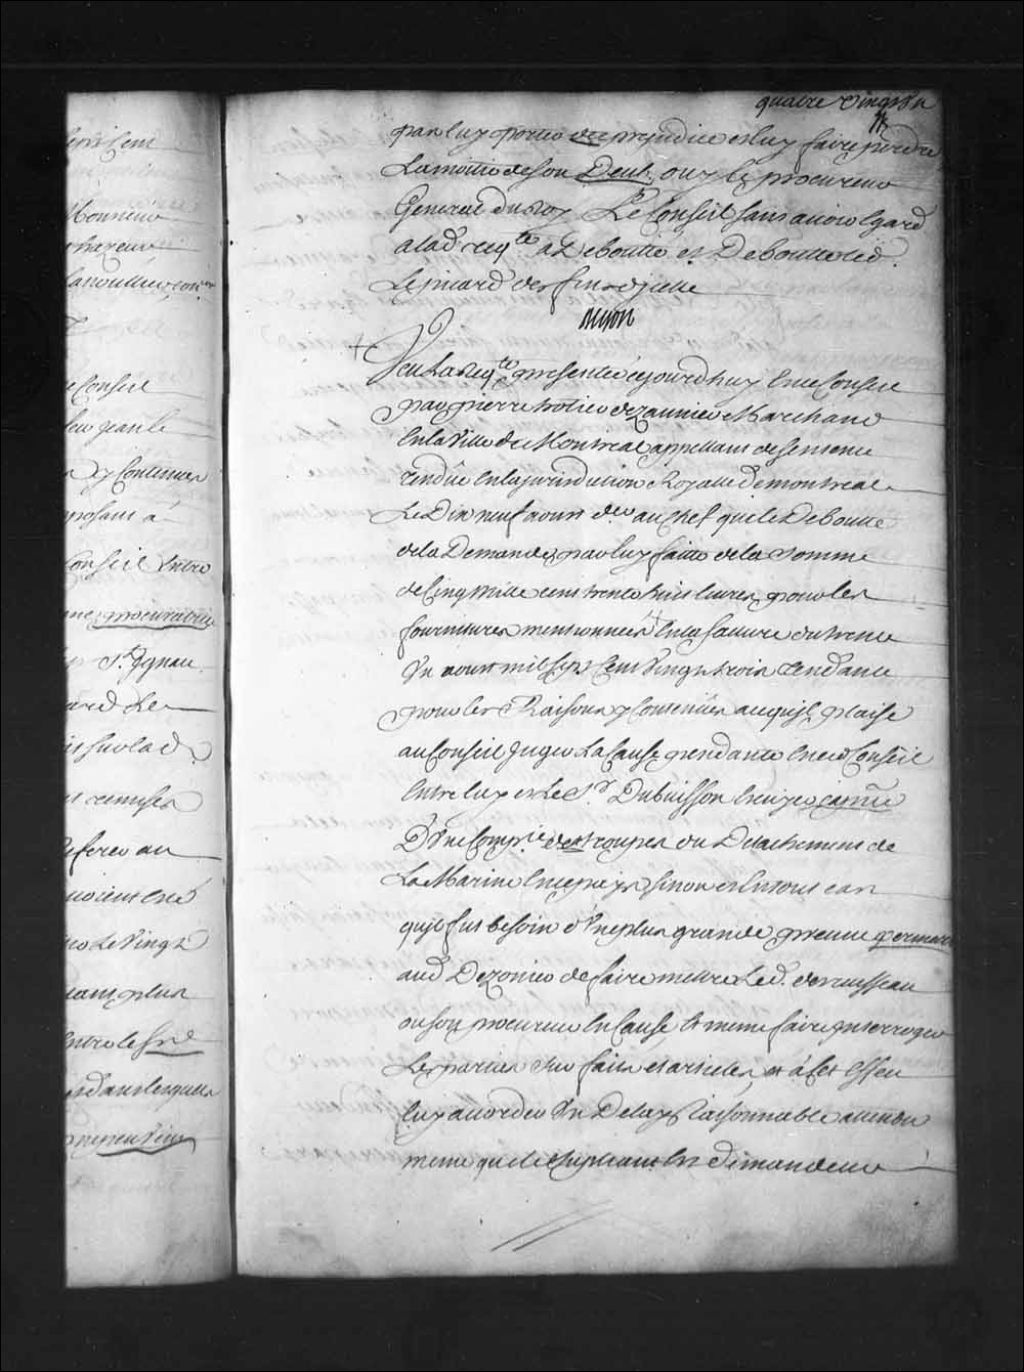 quatre vingt un
par luy porter de prejudice et luy faire perdre
La moitié de son Deub, ouy le procureur
General du Roy Le Conseil sans avoir Egard
a lad. reqte a Deboutté et Deboutte led.
Lepinard des fins d'jcelle
Veu La Reqte presentée cejourd'huy En ce Conseil
par pierre trotier dezaunier Marchand
En la Ville de Montreal appellant de sentence
rendüe En la jurisdiction Royalle de montreal
Le Dix neuf aoust der. au chef quj le Deboute
de la Demande par luy faitte de la somme
de Cinq Mille cent trente huit livres pour les
fournitures mentionnées En la facture du trente
Un aoust mil sept Cent Vingt trois tendante
pour les Raisons y Contenües a ce qu'jl plaise
au Conseil Juger La Cause pendante En ced. Conseil
Entre luy et Le Sr. Dubuisson Ecuyer capne
D'Une Compie des troupes du Détachement de
La Marine En ce pays sinon et En tout cas
qu'jl fut besoin d'Une plus grande preuve permettre
aud. Dezonier de faire mettre Led. deruisseau
ou son procureur En Cause Et meme faire jnterroger
Les parties sur faits et articles, et a cet Effet
luy accorder Un Delay Raisonnable attendu
meme que le supliant Est demandeur
erois Cent
Monsieur
e Conseil
leu jean le
y Contenues
posant a
Conseil Entre
procuratrice
St. Jgnace
ard Le
is sur lad.
et remises
Referer au
Le Vingt
ant plus
Entre les
dans lesquels